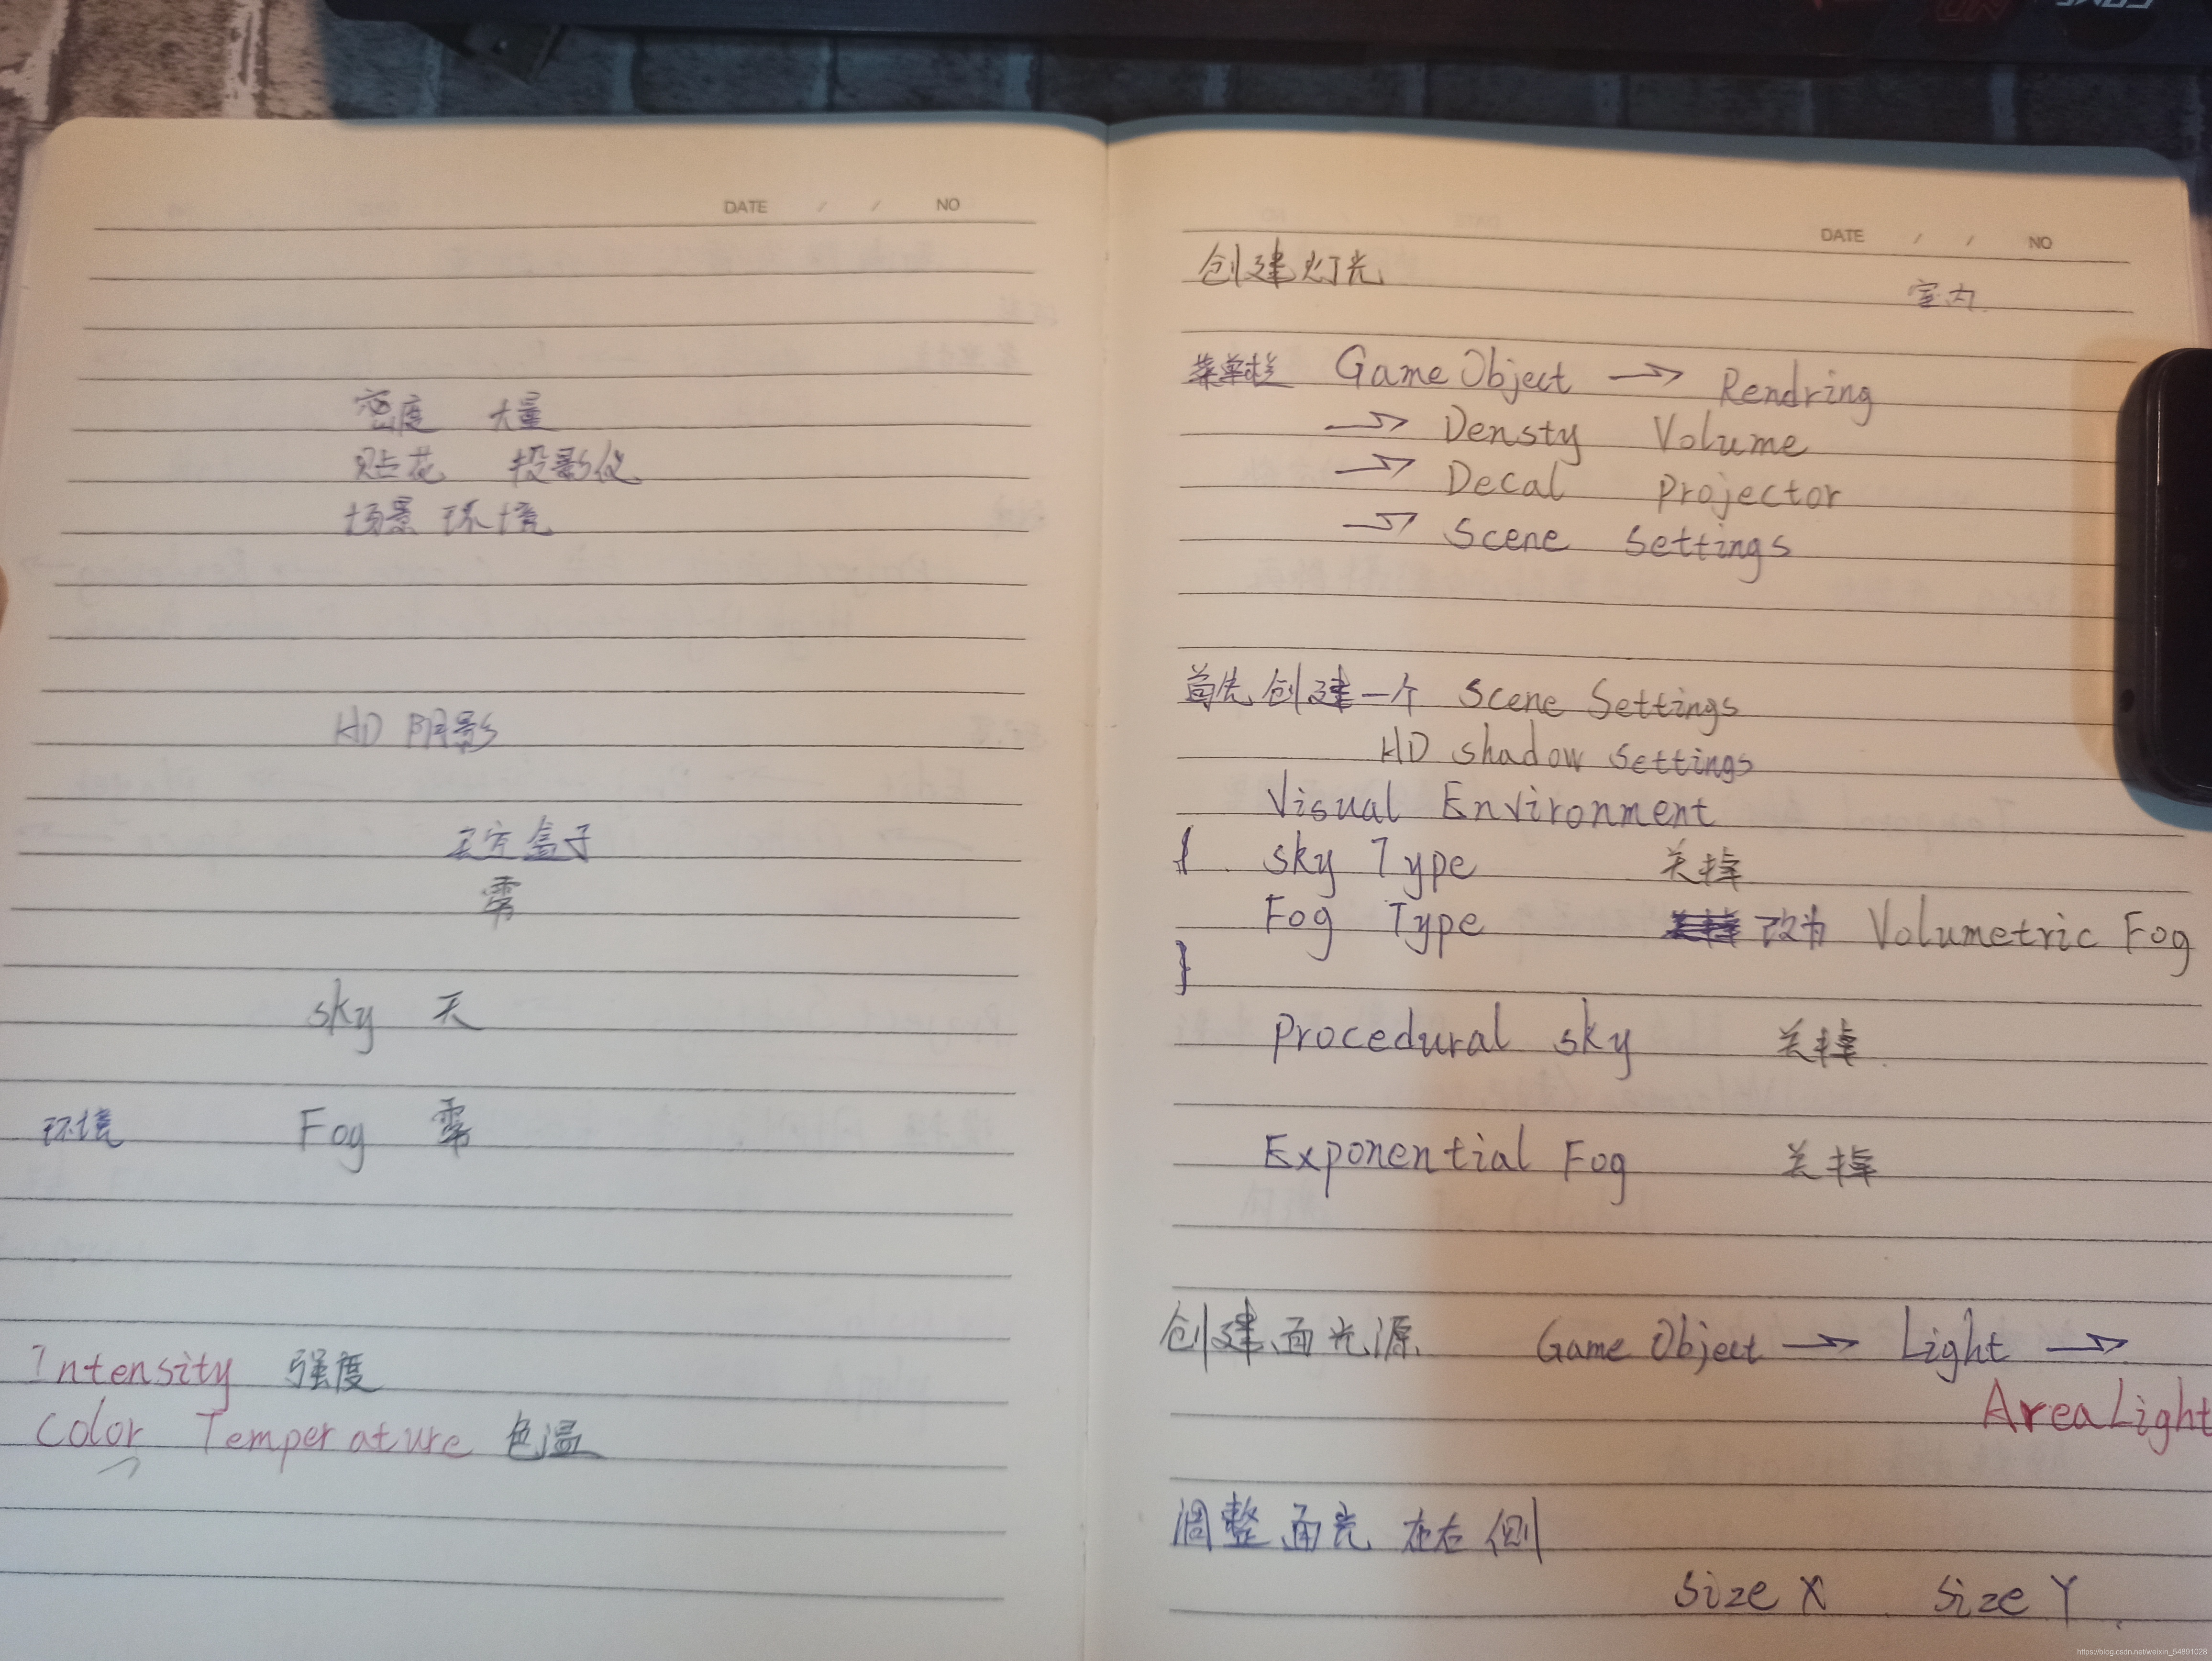 DATE / / NO
密度 大量
贴花 投影仪
场景 环境
HD 阴影
天方盒子
雾
sky 天
环境 Fog 雾
Intensity 强度
Color Temperature 色温
DATE / / NO
创建灯光
室内
菜单栏 GameObject → Rendring
→ Densty Volume
→ Decal projector
→ Scene Settings
首先创建一个 Scene Settings
HD shadow settings
Visual Environment
{ sky Type 关掉
Fog Type 改为 Volumetric Fog
}
procedural sky 关掉.
Exponential Fog 关掉
创建面光源 Game Object → Light →
AreaLight
调整面光 在右侧
size X size Y
https://blog.csdn.net/weixin_54891028